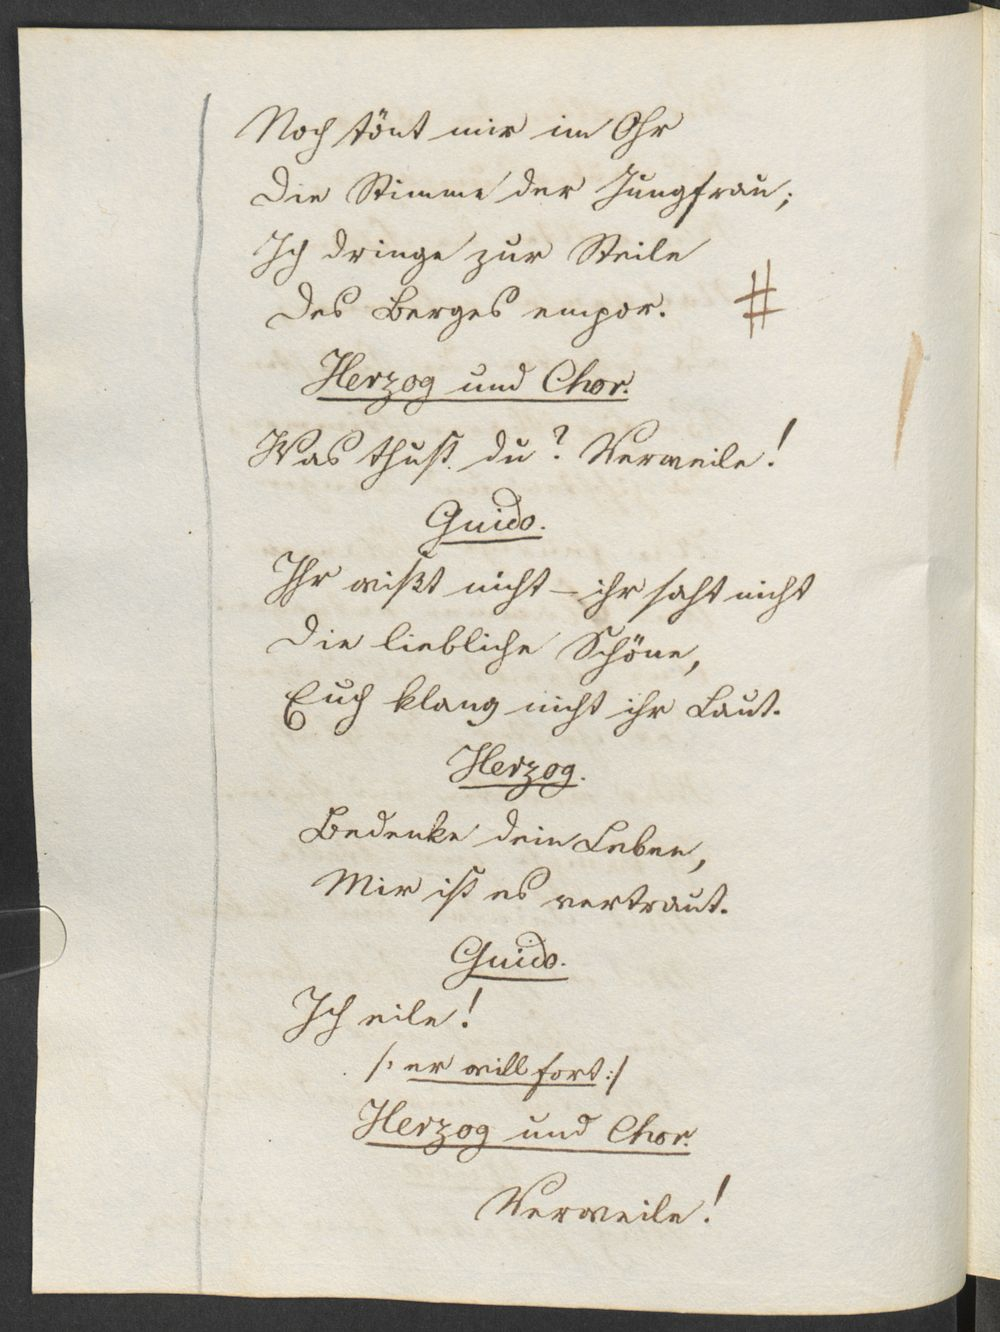 Noch tönt mir im Ohr
Die Stimme der Jungfrau;
Ich dringe zur Steile
Des Berges empor. #
Herzog und Chor.
Was thust du? Verweile!
Guido.
Ihr wißt nicht – ihr saht nicht
Die liebliche Schöne,
Euch klang nicht ihr Laut.
Herzog.
Bedenke dein Leben,
Mir ist es vertraut.
Guido.
Ich eile!
/: er will fort :/
Herzog und Chor.
Verweile!